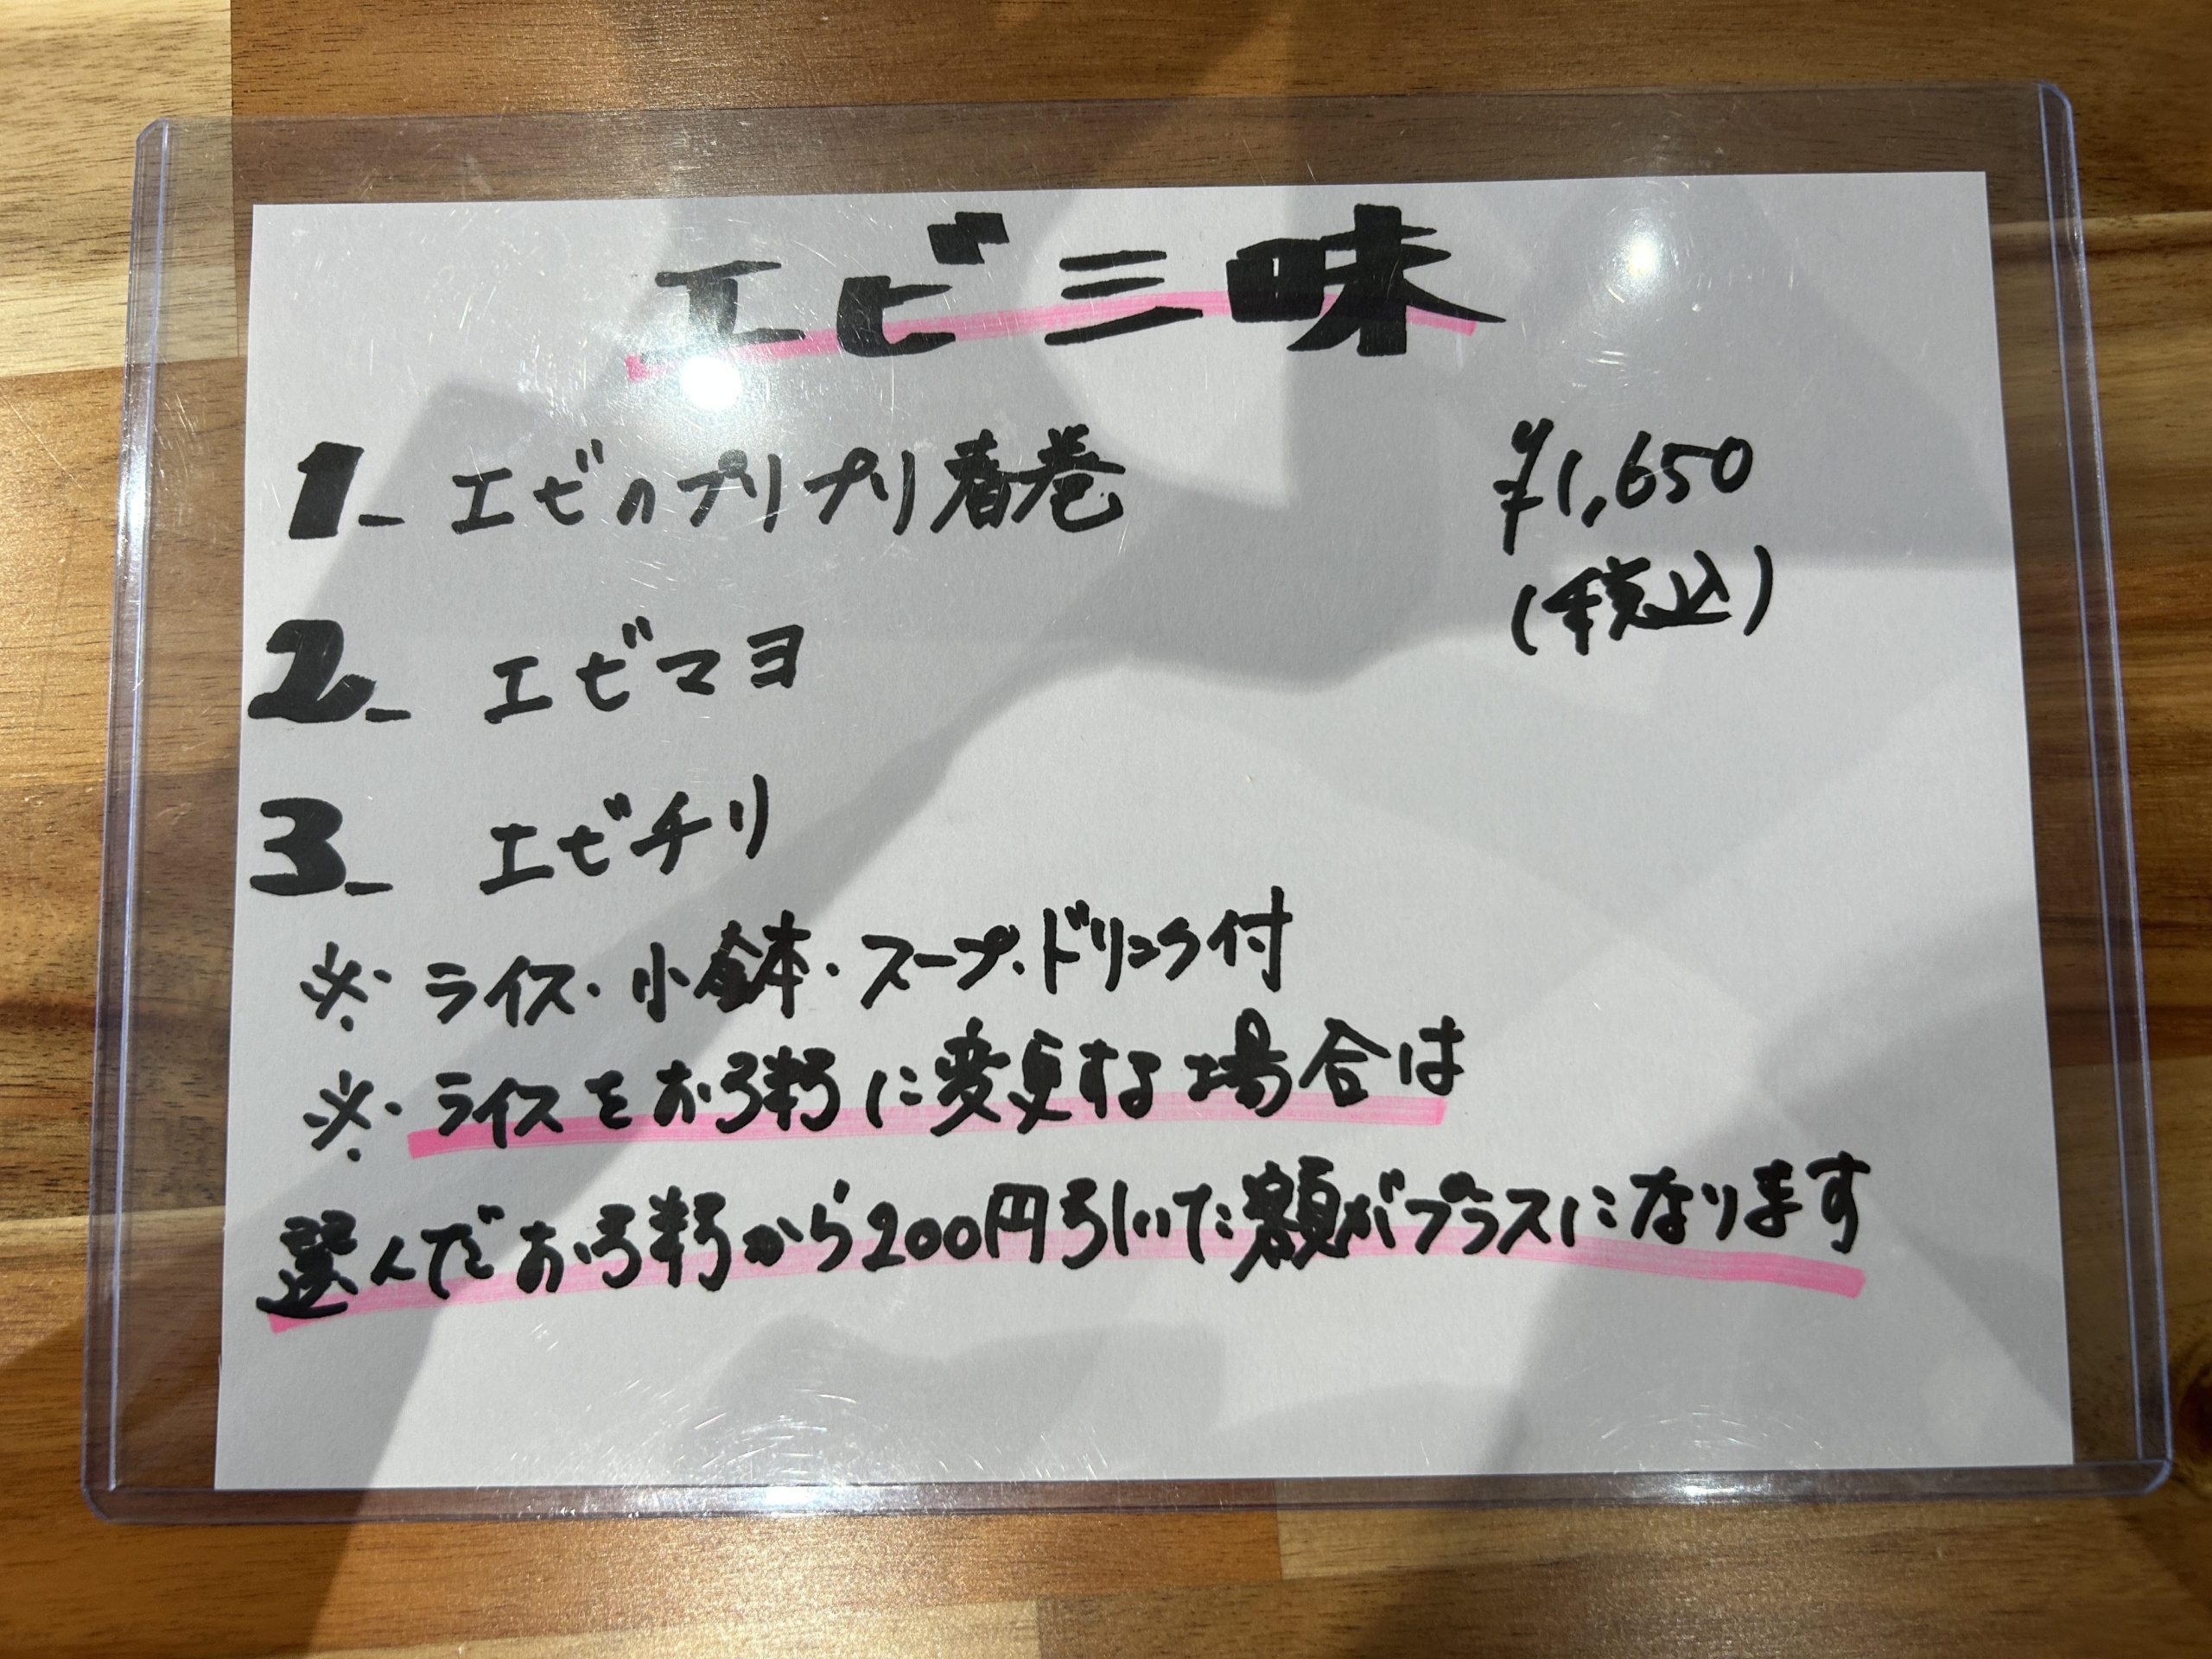 エビ三味
1_ エビのプリプリ春巻 ¥1,650
(税込)
2_ エビマヨ
3_ エビチリ
※ ライス・小鉢・スープ・ドリンク付
※ ライスをお粥に変更する場合は
選んだお粥から200円引いた額がプラスになります